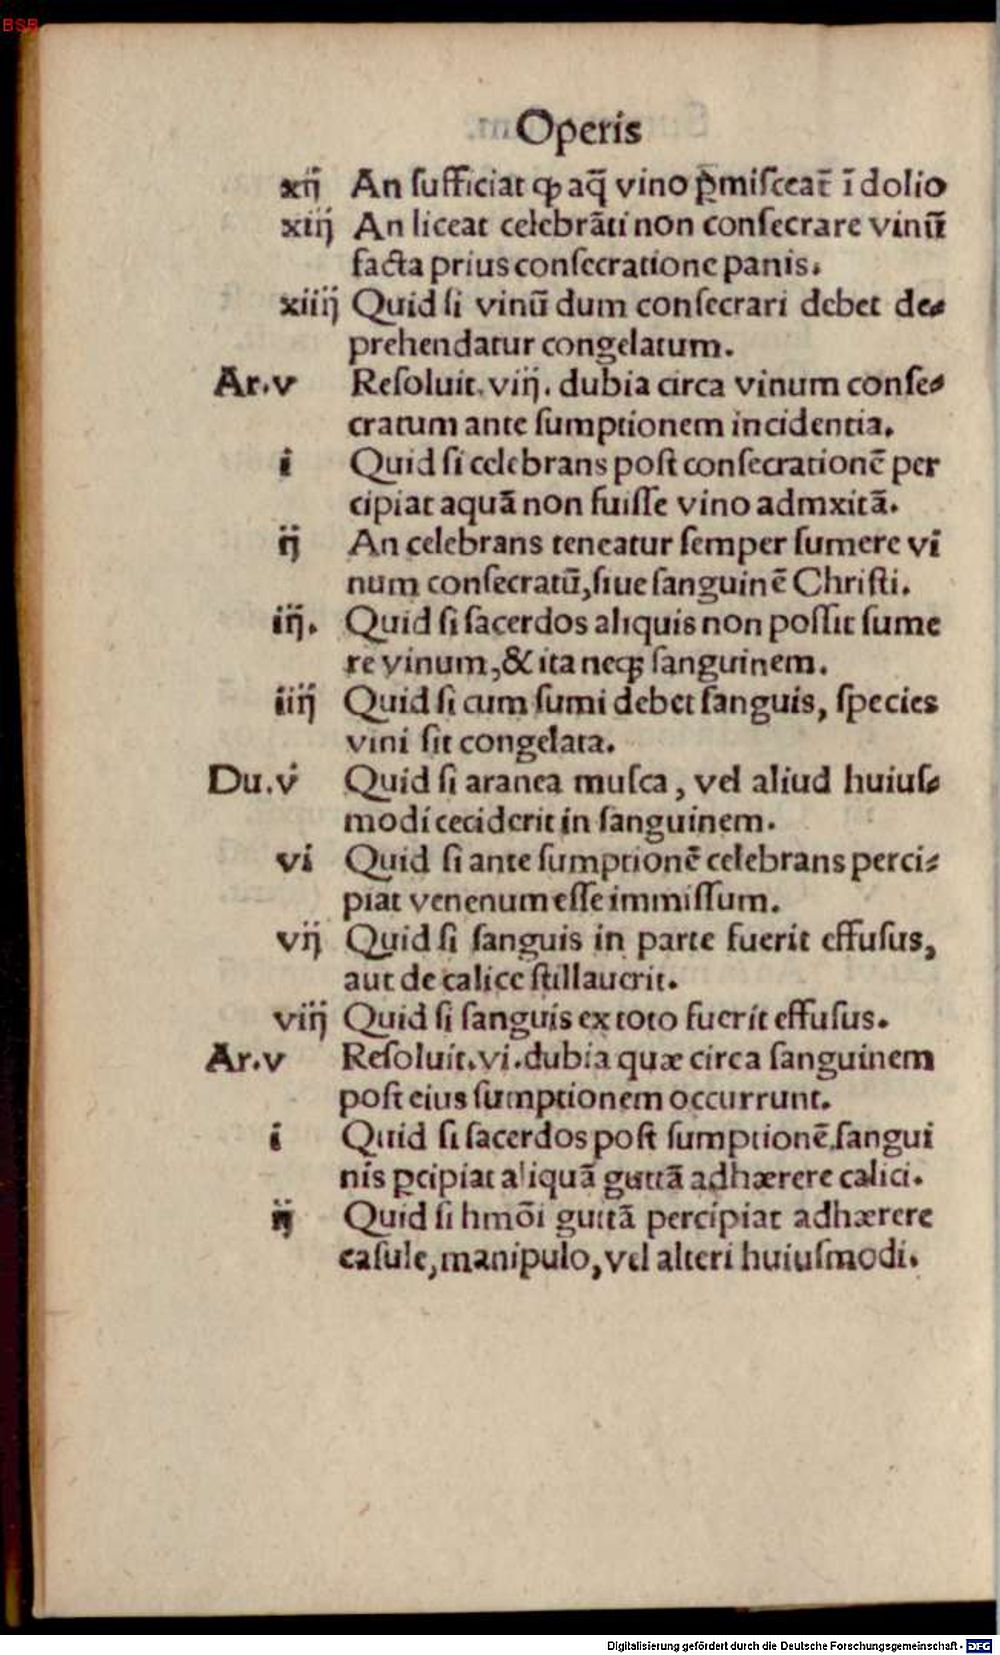 BSB
Operis
xij An sufficiat ꝙ aq̃ vino p̱misceat̃ ĩ dolio
xiij An liceat celebrãti non consecrare vinũ
facta prius consecratione panis.
xiiij Quid si vinũ dum consecrari debet de⸗
prehendatur congelatum.
Ar.v Resoluit.viij. dubia circa vinum conse⸗
cratum ante sumptionem incidentia.
i Quid si celebrans post consecrationẽ per
cipiat aquã non fuisse vino admxitã.
ij An celebrans teneatur semper sumere vi
num consecratũ, siue sanguinẽ Christi.
iij. Quid si sacerdos aliquis non possit sume
re vinum, & ita neqꝫ sanguinem.
iiij Quid si cum sumi debet sanguis, species
vini sit congelata.
Du.v Quid si aranea musca, vel aliud huius⸗
modi ceciderit in sanguinem.
vi Quid si ante sumptionẽ celebrans perci⸗
piat venenum esse immissum.
vij Quid si sanguis in parte fuerit effusus,
aut de calice stillauerit.
viij Quid si sanguis ex toto fuerit effusus.
Ar.v Resoluit.vi.dubia quæ circa sanguinem
post eius sumptionem occurrunt.
i Quid si sacerdos post sumptionẽ sangui
nis ꝑcipiat aliquã guttã adhærere calici.
ij Quid si hmõi guttã percipiat adhærere
casule, manipulo, vel alteri huiusmodi.
Digitalisierung gefördert durch die Deutsche Forschungsgemeinschaft - DFG